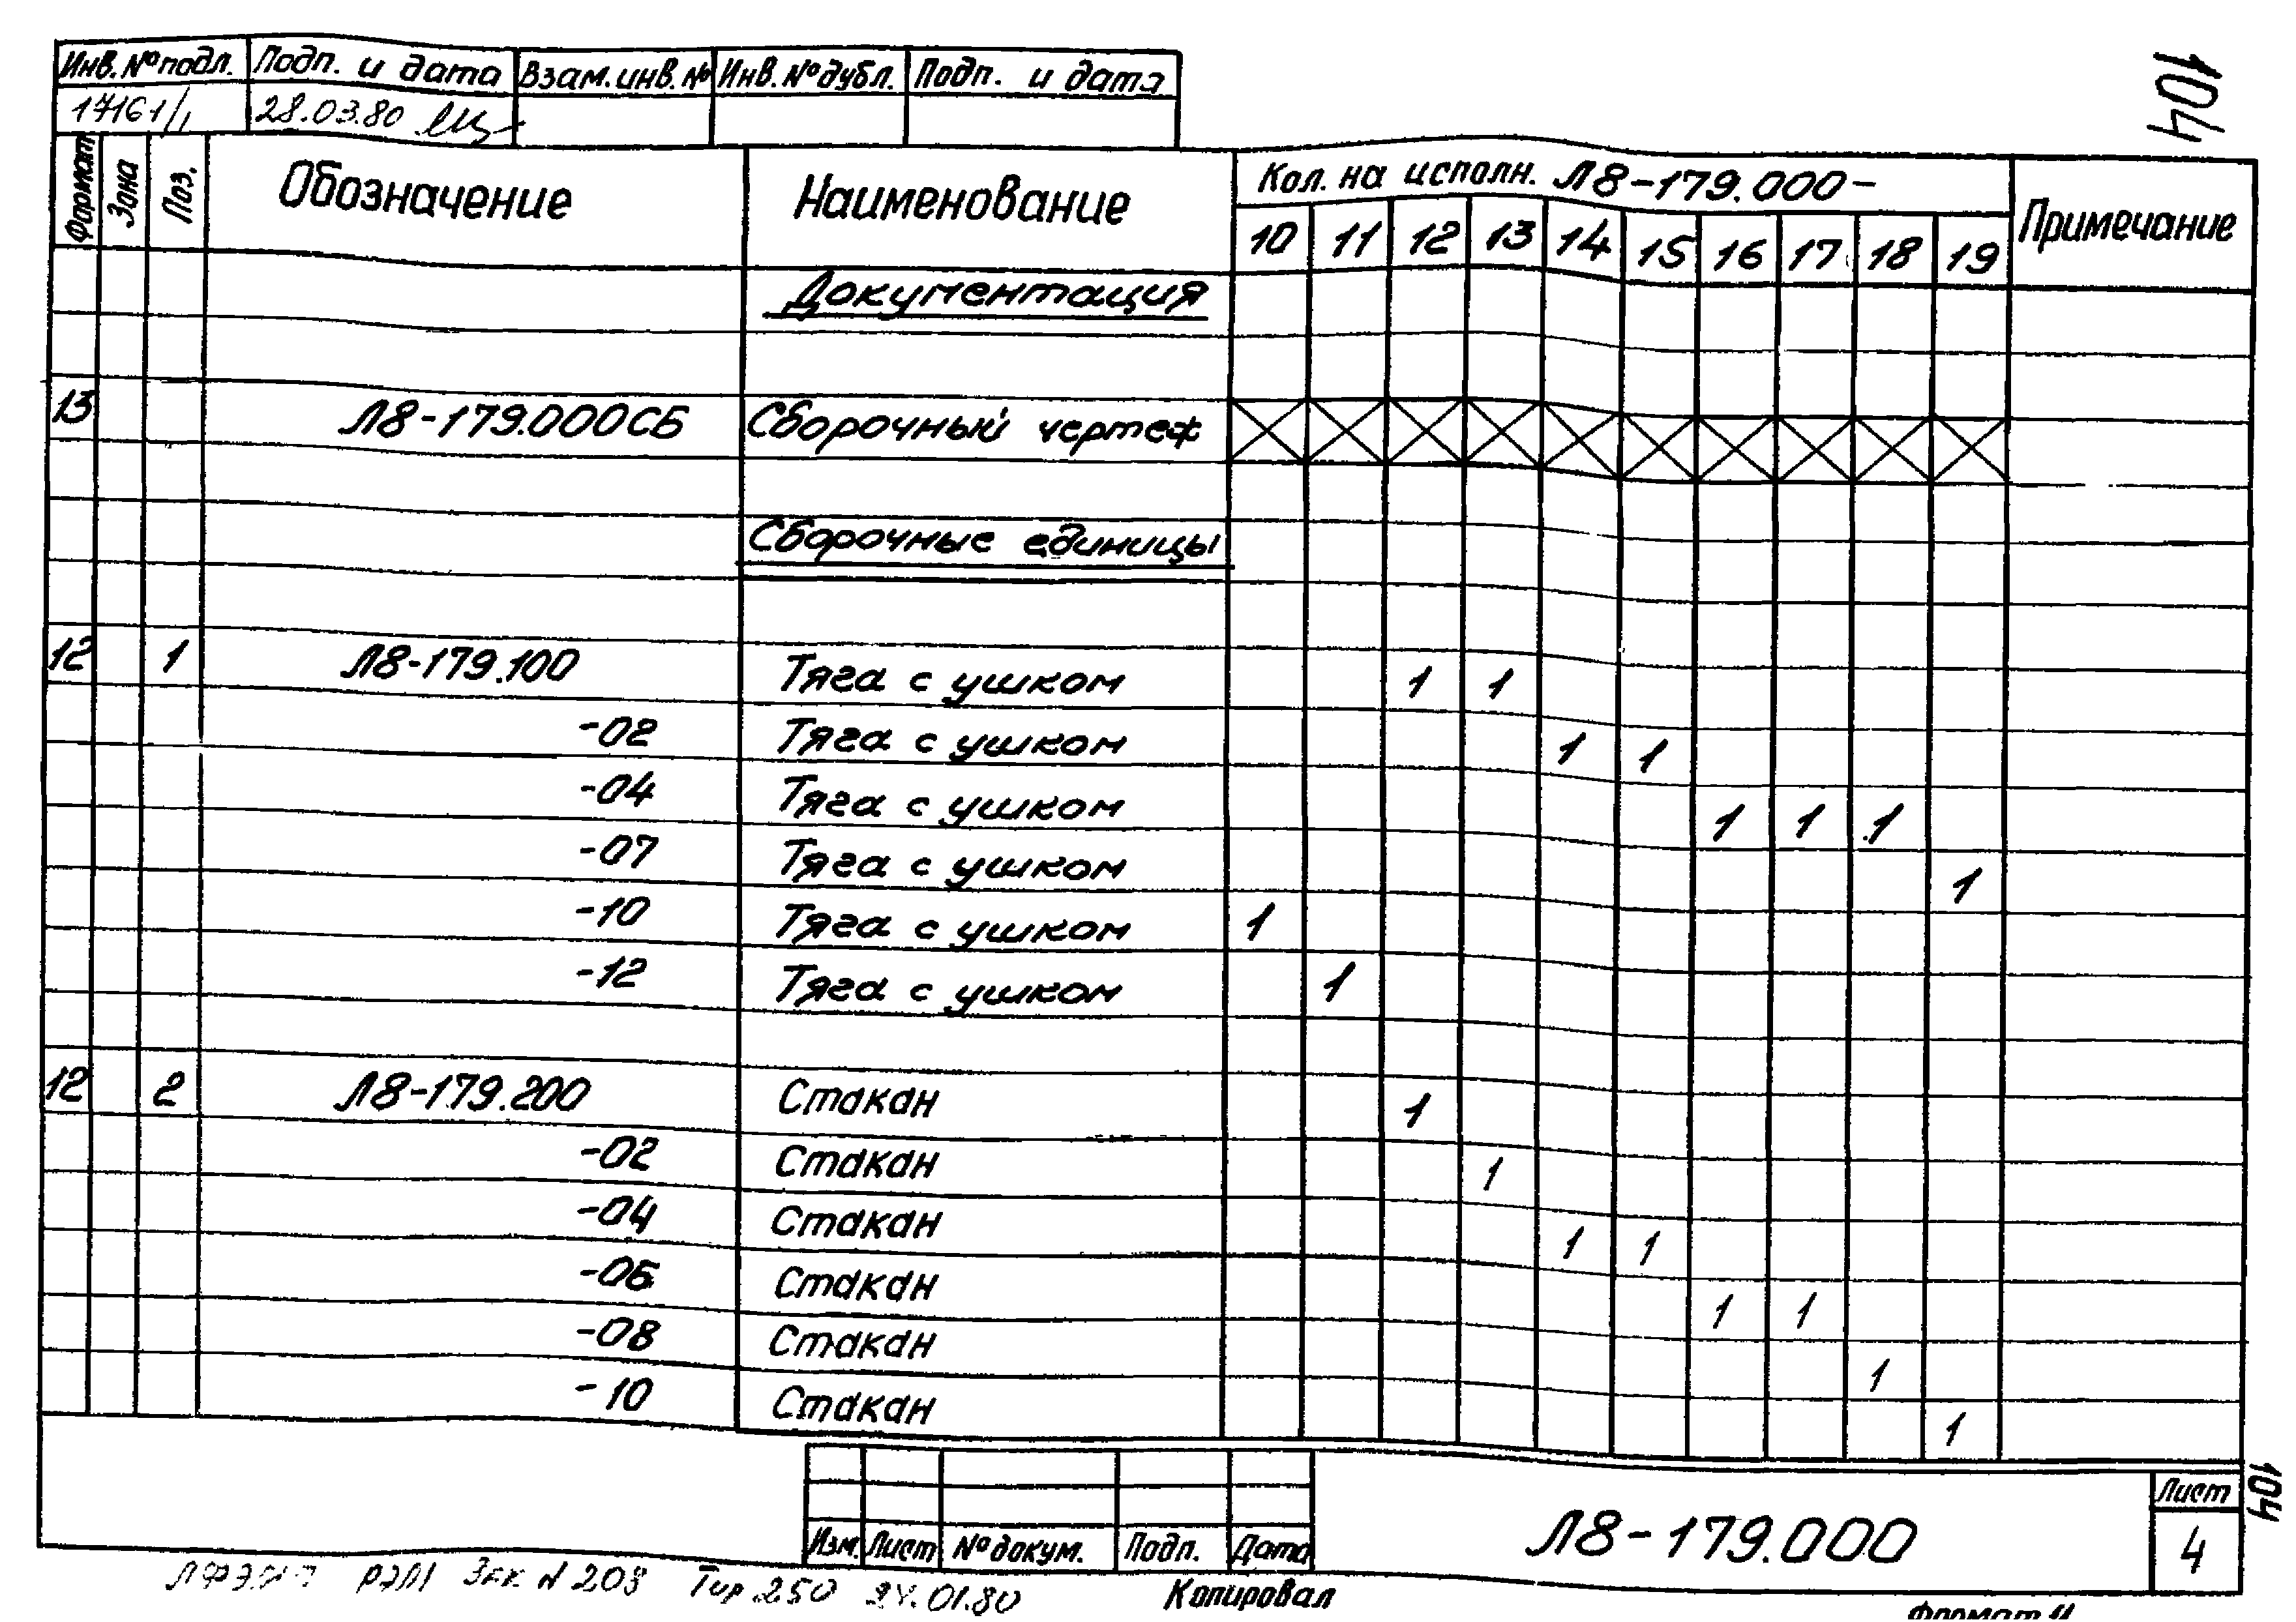 104
Инв.№подл. Подп. и дата Взам.инв.№ Инв.№дубл. Подп. и дата
17161/1 28.03.80
Формат Зона Поз. Обозначение Наименование Кол. на исполн. Л8-179.000- Примечание
10 11 12 13 14 15 16 17 18 19
Документация
13 Л8-179.000СБ Сборочный чертеж
Сборочные единицы
12 1 Л8-179.100 Тяга с ушком 1 1
-02 Тяга с ушком 1 1
-04 Тяга с ушком 1 1 1
-07 Тяга с ушком 1
-10 Тяга с ушком 1
-12 Тяга с ушком 1
12 2 Л8-179.200 Стакан 1
-02 Стакан 1
-04 Стакан 1 1
-06 Стакан 1 1
-08 Стакан 1
-10 Стакан 1
Изм. Лист №докум. Подп. Дата
Л8-179.000
Лист
4
104
Зак N 208 Тир 250 24.01.80
Копировал
Формат 11